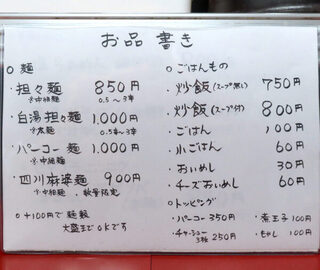 お品書き
○麺
・担々麺 850円
※中細麺 0.5〜3辛
・白湯担々麺 1,000円
※太麺 0.5辛〜3辛
・パーコー麺 1,000円
※中細麺
・四川麻婆麺 900円
※中細麺 数量限定
○+100円で麺類
大盛まで OKです
○ごはんもの
・炒飯(スープ無し) 750円
・炒飯(スープ付) 800円
・ごはん 100円
・小ごはん 60円
・おいめし 30円
・チーズおいめし 60円
○トッピング
・パーコー 350円 ・煮玉子 100円
・チャーシュー3枚 250円 ・もやし 100円